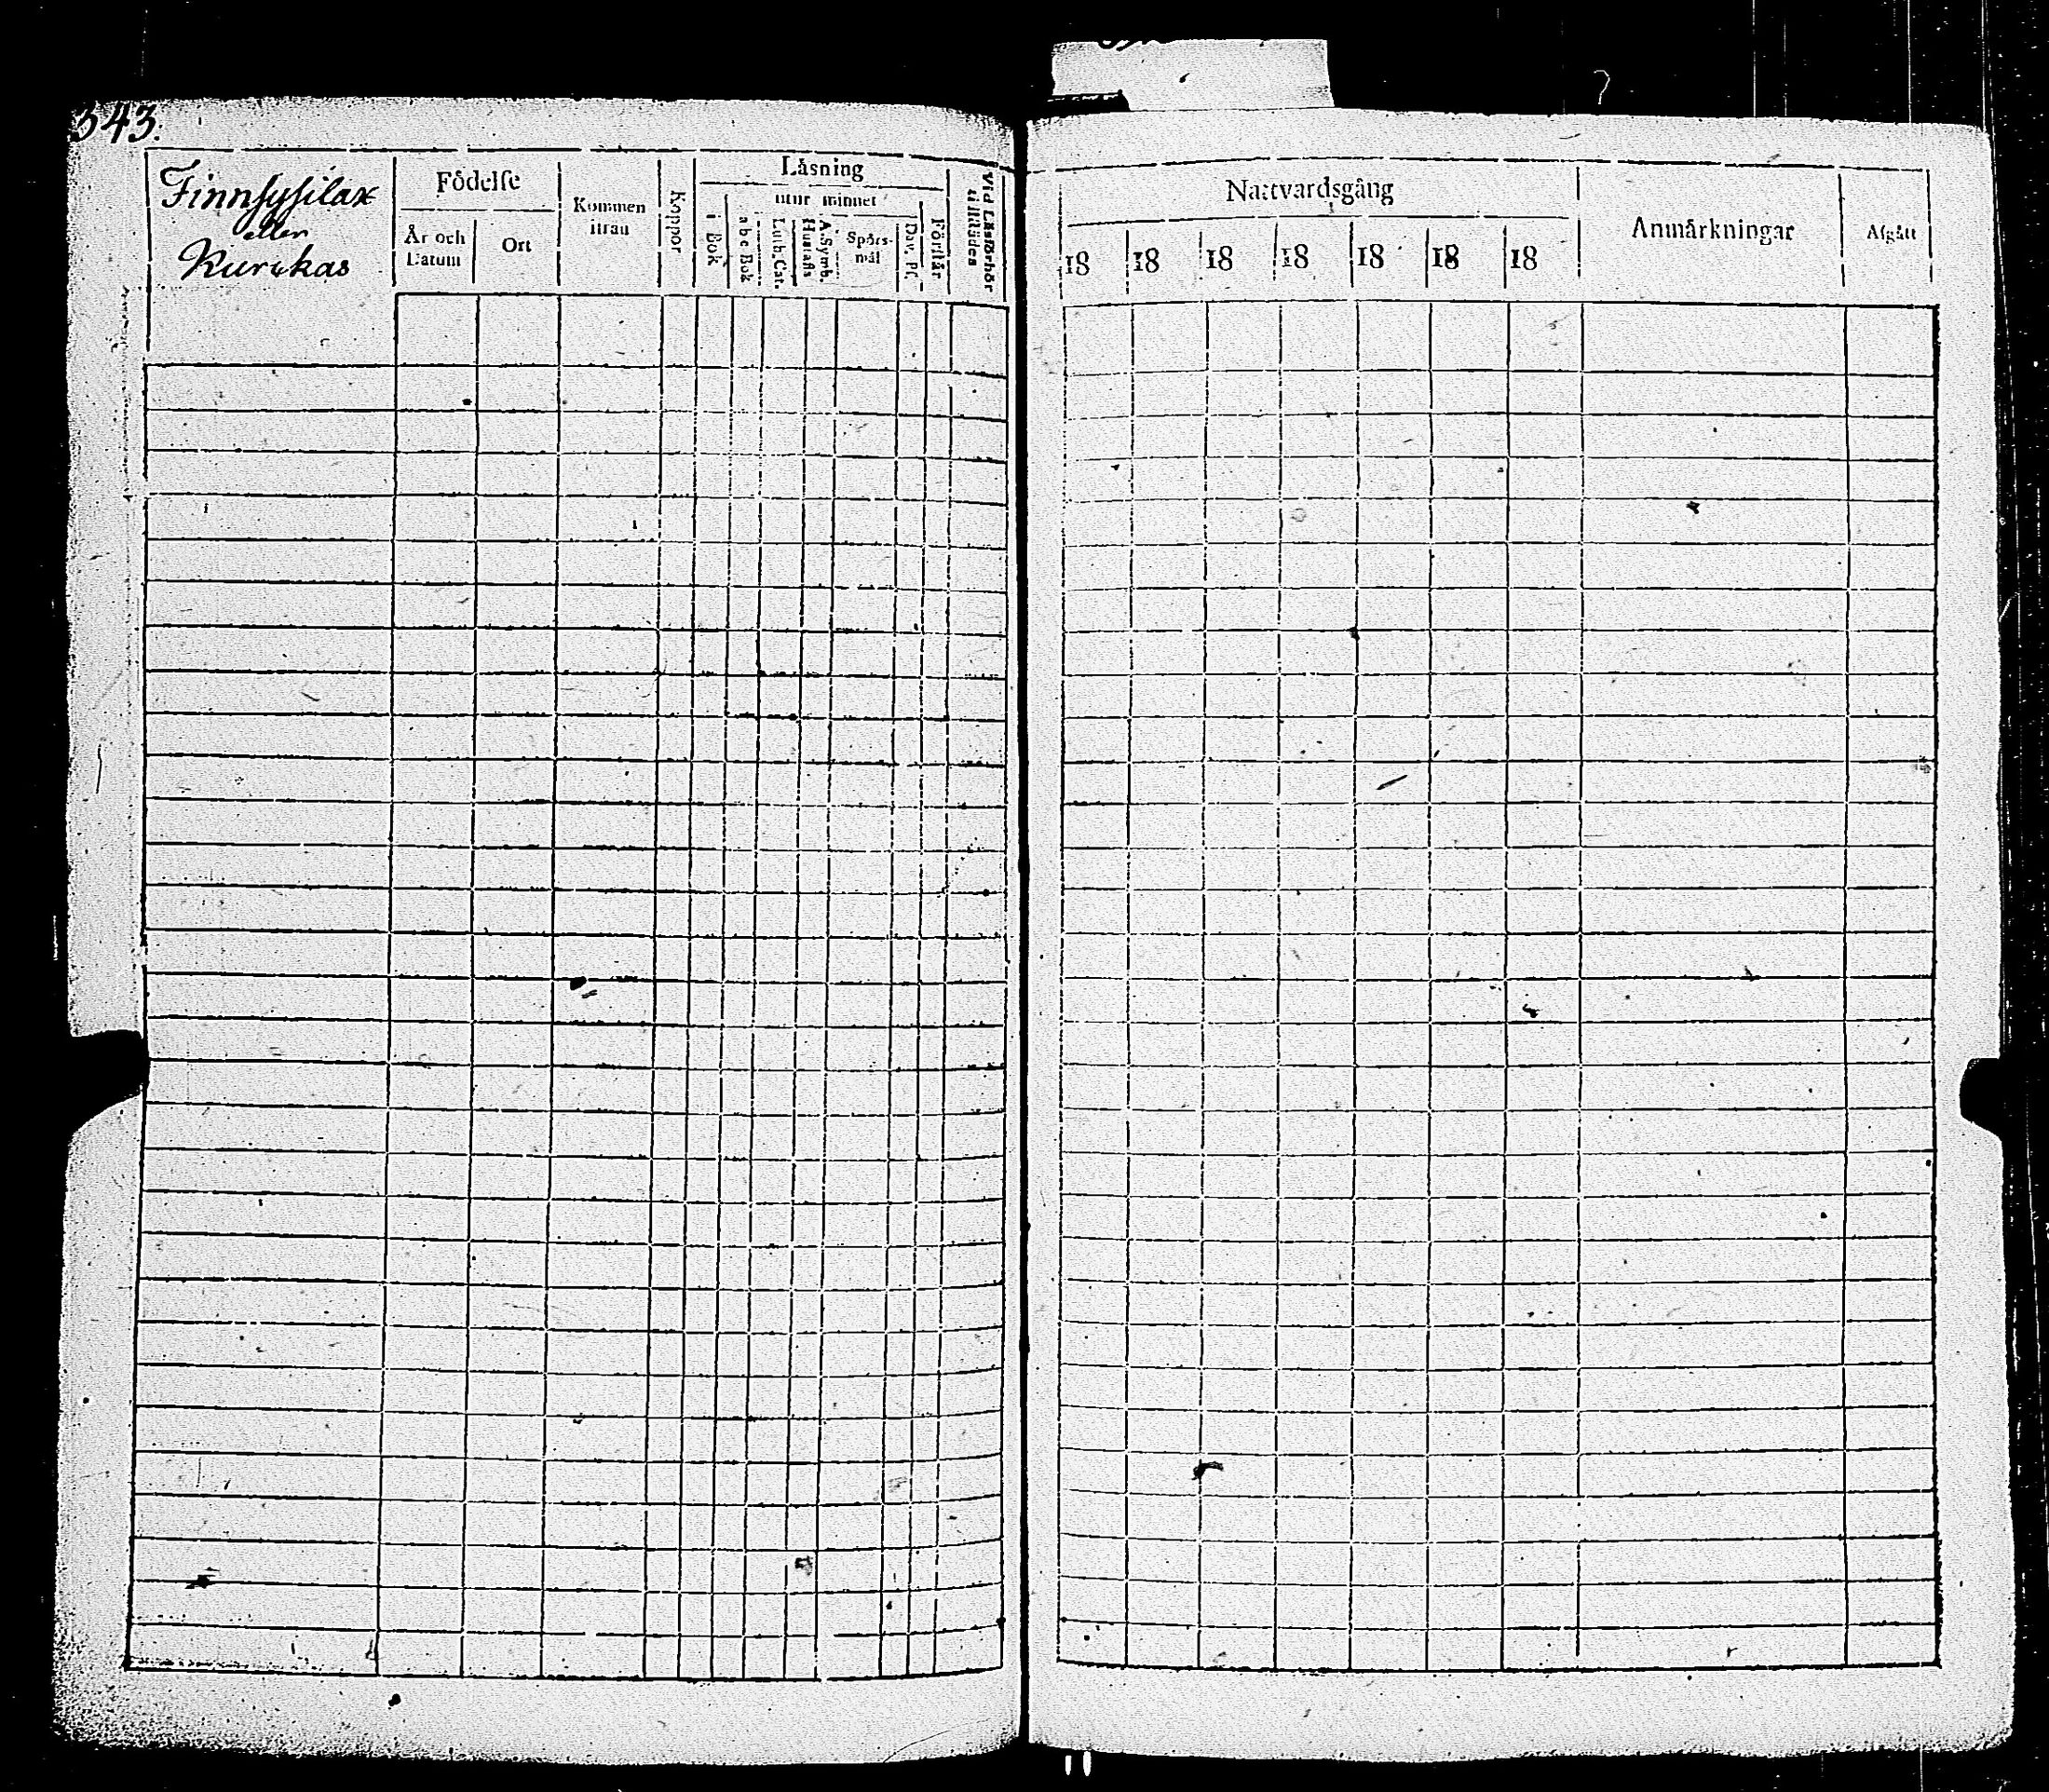 543.
Finnsysilax
eller
Kurckas
Födelse
År och
Datum
Ort
Kommen
ifrån
Koppor
Läsning
utur minnet
i Bok
a b c Bok
Luth. Cat.
Hustafl.
A. Symb.
Spörs-
mål
Dav. Ps.
Förstår
Vid Läsförhör
tillstädes
Nattvardsgång
18 18 18 18 18 18 18
Anmärkningar
Afgått